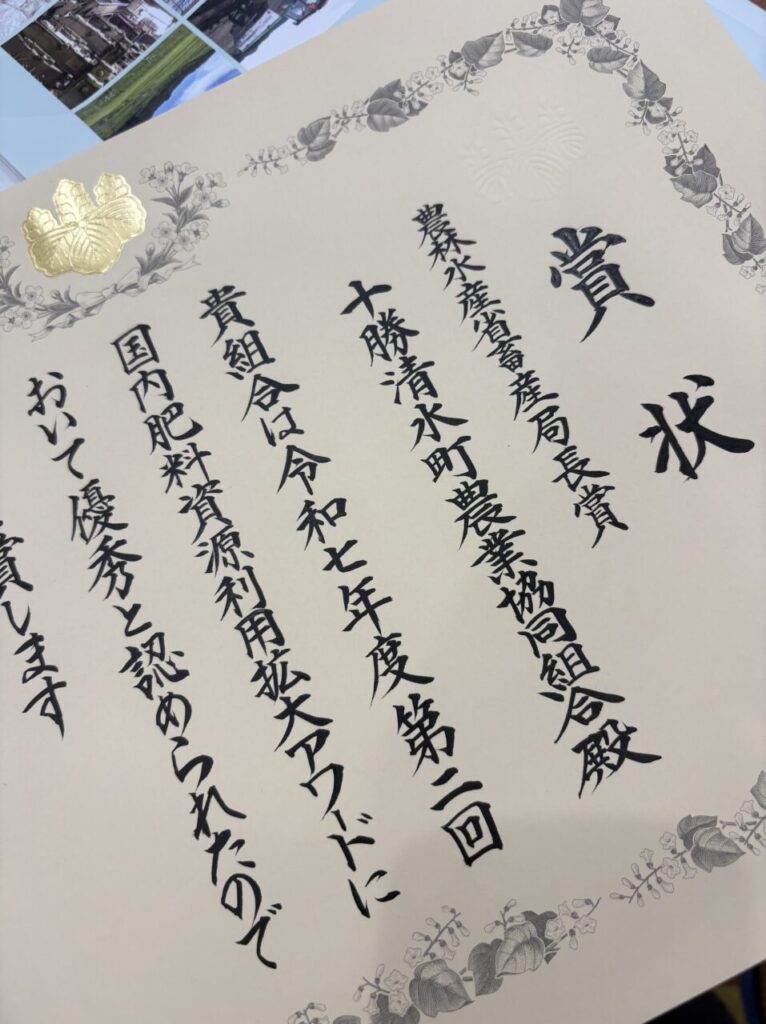 賞状
農林水産省畜産局長賞
十勝清水町農業協同組合殿
貴組合は令和七年度第二回
国内肥料資源利用拡大アワードに
おいて優秀と認められたので
賞します